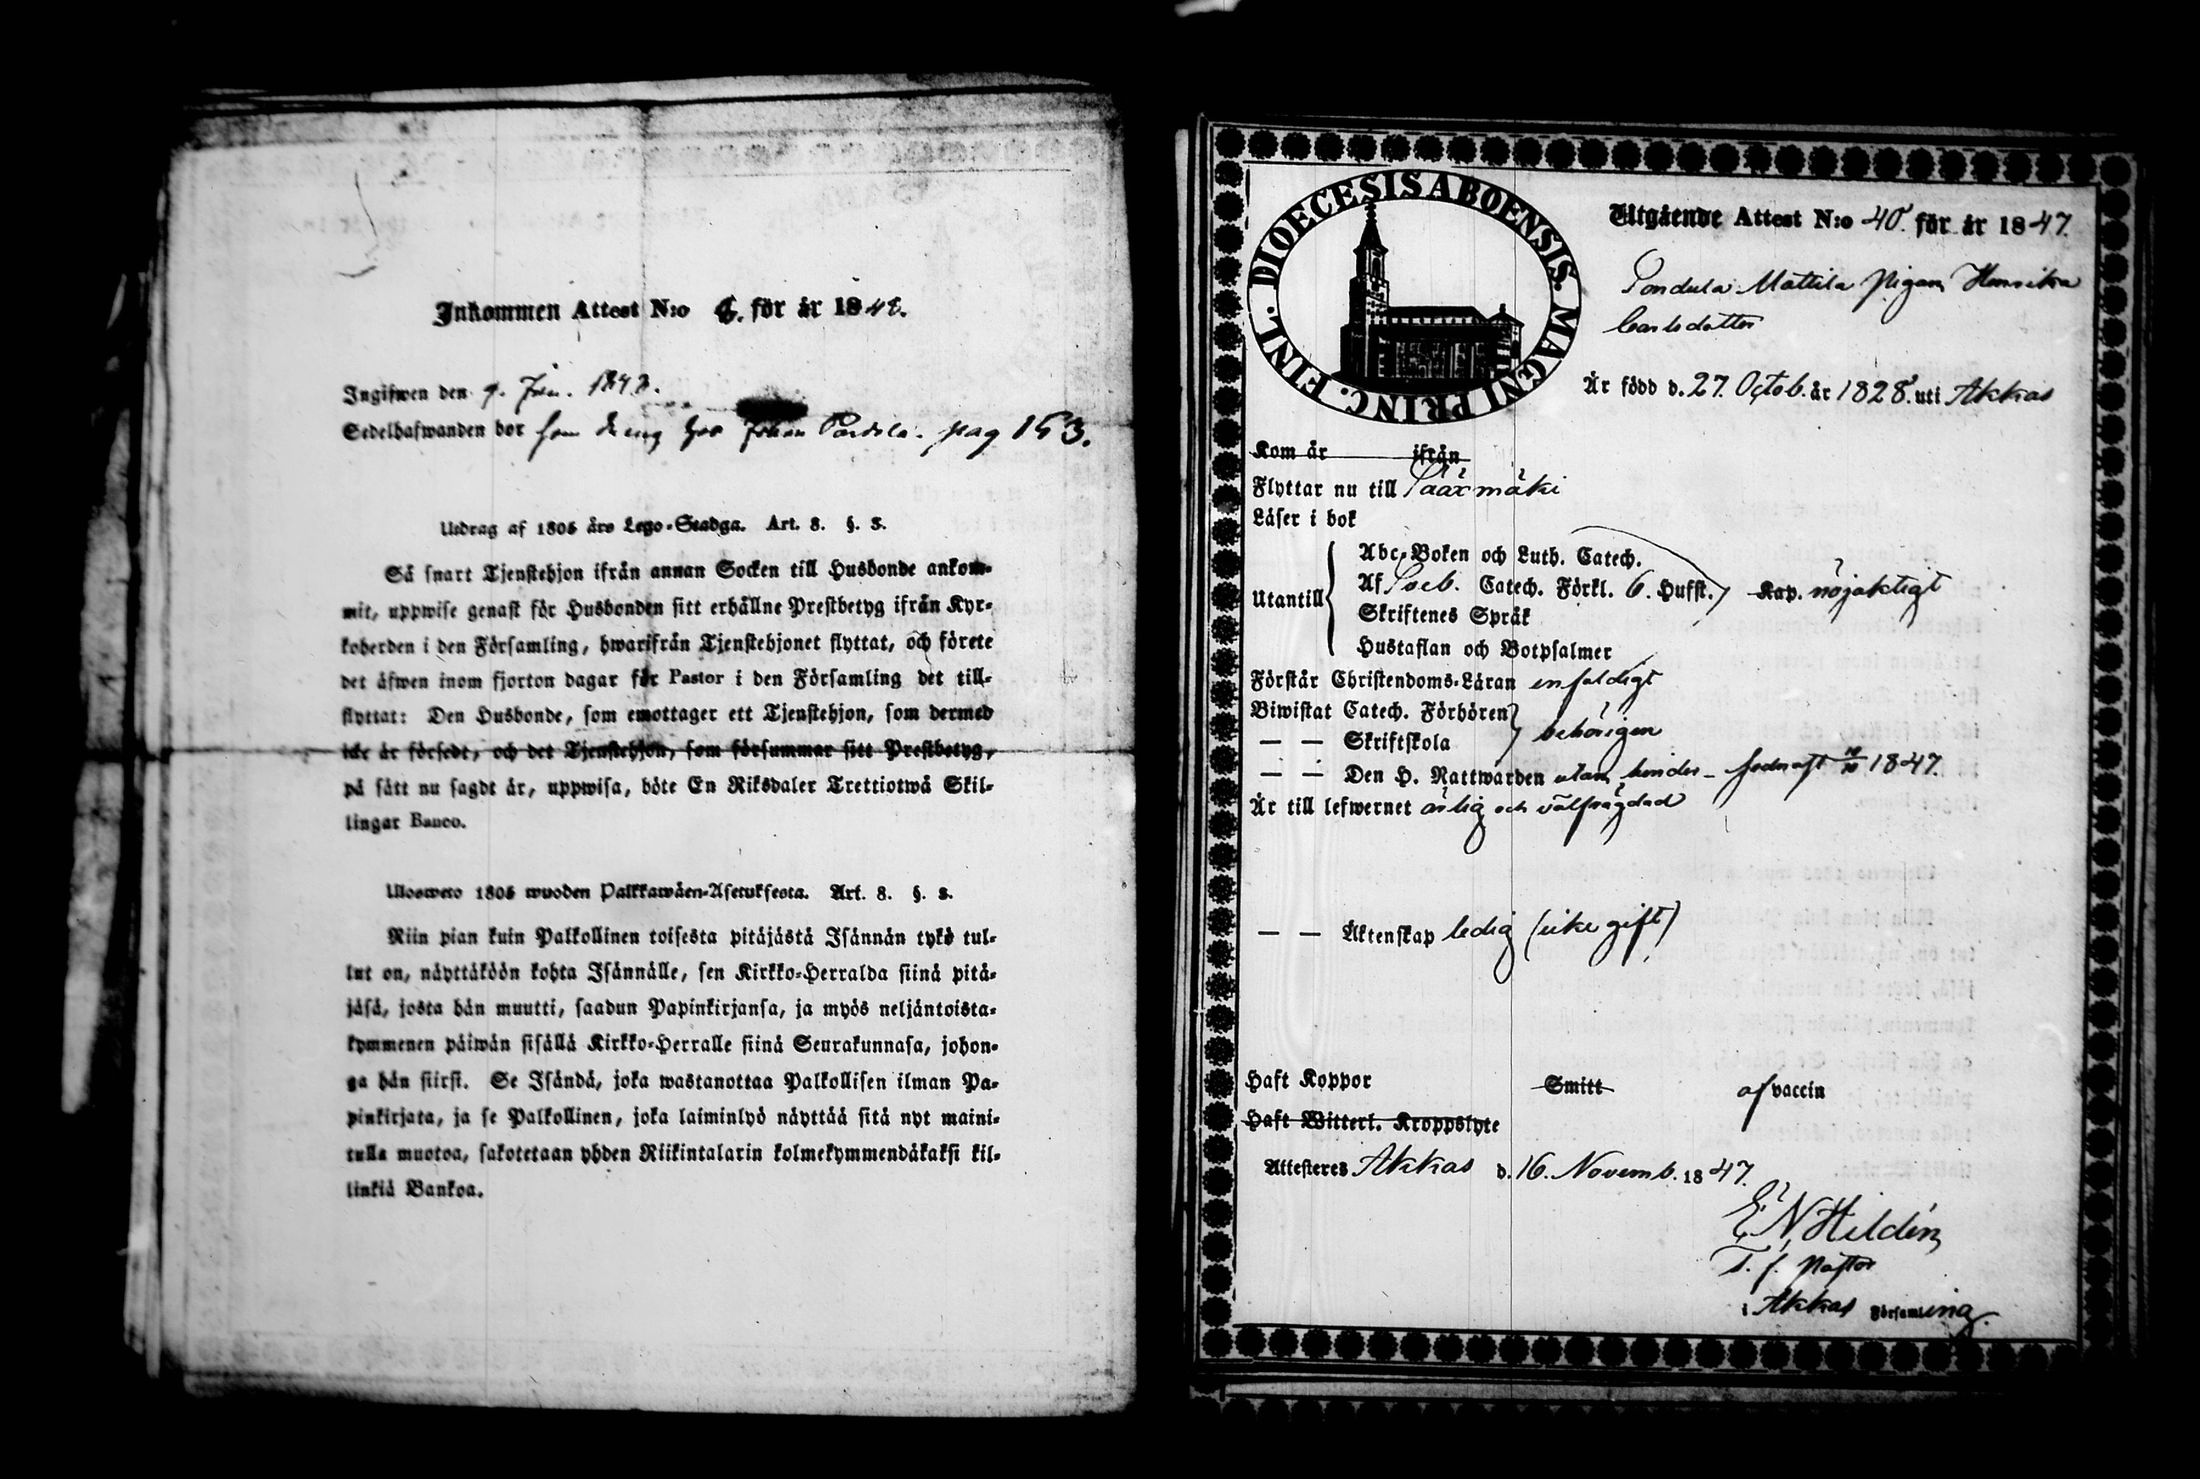 Inkommen Attest N:o 6. för år 1848.
Ingifwen den 9. Jan. 1848.
Sedelhafwanden bor som dräng hos Johan pag 153.
Utdrag af 1805 års Lego-Stadga. Art. 8. §. 3.
Så snart Tjenstehjon ifrån annan Socken till Husbonde ankom-
mit, uppwise genast för Husbonden sitt erhållne Prestbetyg ifrån Kyr-
koherden i den Församling, hwarifrån Tjenstehjonet flyttat, och förete
det äfwen inom fjorton dagar för Pastor i den Församling det till-
flyttat: Den Husbonde, som emottager ett Tjenstehjon, som dermed
icke är försedt, och det Tjenstehjon, som försummar sitt Prestbetyg,
på sätt nu sagdt är, uppwisa, böte En Riksdaler Trettiotwå Skil-
lingar Banco.
Ulosweto 1805 wuoden Palkkawäen-Asetuksesta. Art. 8. §. 3.
Niin pian kuin Palkollinen toisesta pitäjästä Isännän tykö tul-
lut on, näyttäköön kohta Isännälle, sen Kirkko-Herralda siinä pitä-
jäsä, josta hän muutti, saadun Papinkirjansa, ja myös neljäntoista-
kymmenen päiwän sisällä Kirkko-Herralle siinä Seurakunnasa, johon-
ga hän siirsi. Se Isändä, joka wastanottaa Palkollisen ilman Pa-
pinkirjata, ja se Palkollinen, joka laiminlyö näyttää sitä nyt maini-
tulla muotoa, sakotetaan yhden Riikintalarin kolmekymmendäkaksi kil-
linkiä Bankoa.
DIOECESIS ABOENSIS. MAGNI PRINC. FINL.
Utgående Attest N:o 40. för år 1847.
Mattila Pigan Henrika
Carlsdotter
Är född d. 27. Octob. år 1828. uti Akkas
Kom år ifrån
Flyttar nu till Sääxmäki
Läser i bok
Utantill
Abc-Boken och Luth. Catech.
Af Sveb. Catech. Förkl. 6. Hufst. Kap. nöjaktigt
Skriftenes Språk
Hustaflan och Botpsalmer
Förstår Christendoms-Läran enfaldigt
Biwistat Catech. Förhören
— — Skriftskola behörigen
— — Den H. Nattwarden utan hinder – sednast 10/10 1847.
Är till lefwernet ärlig och välfrägdad
— — Äktenskap ledig (icke gift)
Haft Koppor Smitt af vaccin
Haft Witterl. Kroppslyte
Attesteres Akkas d. 16. Novemb. 1847.
E N Hildén
T. f. Pastor
i Akkas Församling.